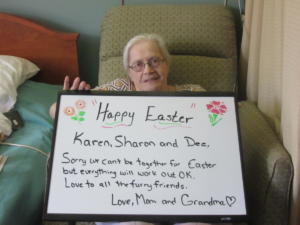 "Happy Easter"
Karen, Sharon and Dee,
Sorry we can't be together for Easter
but everything will work out OK.
Love to all the furry friends.
Love, Mom and Grandma♡